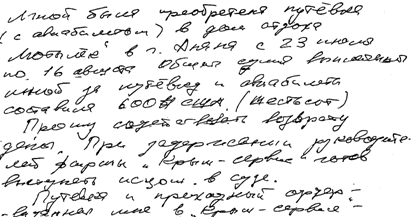 Мной была приобретена путёвка
(с авиабилетом) в дом отдыха
в г. Анапа с 23 июля
по 16 августа Общая сумма выплаченных
мной за путёвку и авиабилета
составила 600$ сша. (шестьсот)
Прошу содействовать возврату
денег. При задержании руководите-
лей фирмы "Крым-сервис" готов
выступить истцом в суде.
Путёвка и приходный ордер -
мне в "Крым-сервис" -